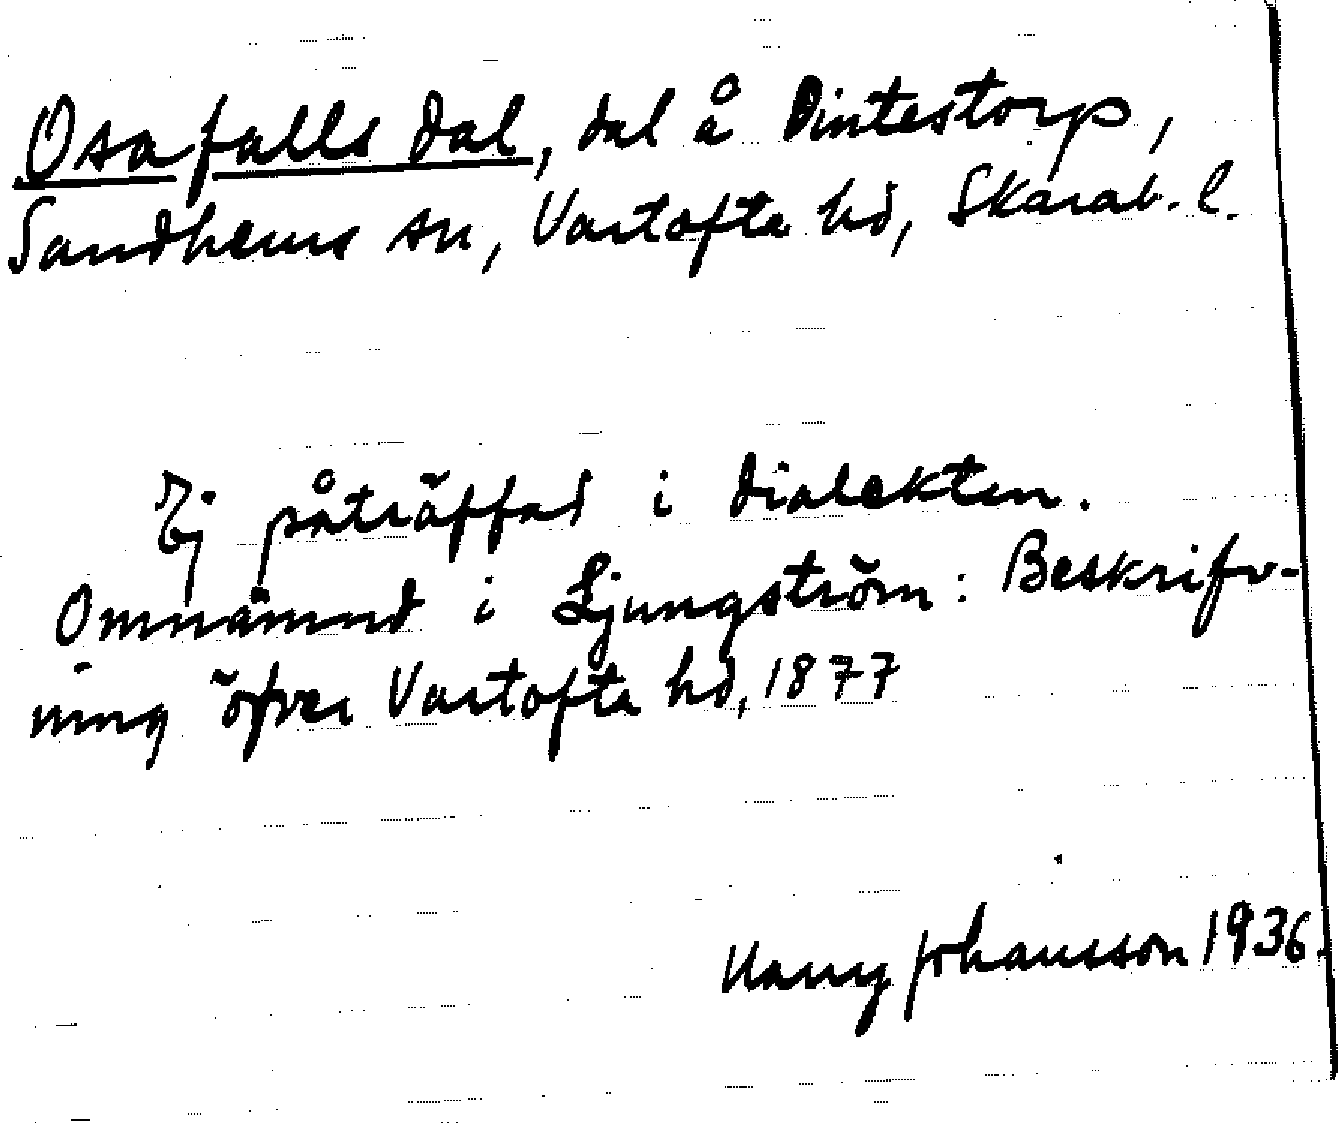 Osafalls dal, dal å Dintestorp,
Sandhems sn, Vartofta hd, Skarab. l.
Ej påträffad i dialekten.
Omnämnd i Ljungström: Beskrifv-
ning öfver Vartofta hd, 1877
Harry Johansson 1936.